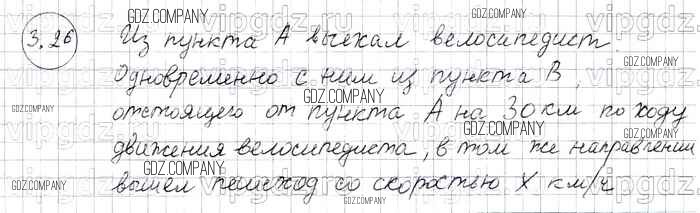 3.26 Из пункта А выехал велосипедист.
Одновременно с ним из пункта В,
отстоящего от пункта А на 30 км по ходу
движения велосипедиста, в том же направлении
вышел пешеход со скоростью х км/ч
GDZ.COMPANY
vipgdz.ru